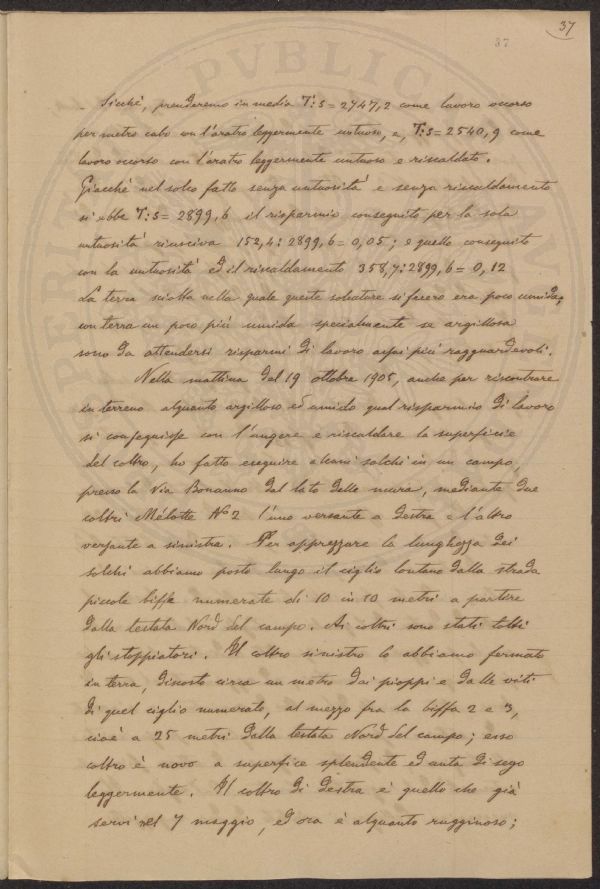 37
37
Sicchè, prenderemo in media T:s = 2747,2 come lavoro occorso
per metro cubo con l'aratro leggermente untuoso, e, T:s = 2540,9 come
lavoro occorso con l'aratro leggermente untuoso e riscaldato.
Giacchè nel solco fatto senza untuosità e senza riscaldamento
si ebbe T:s = 2899,6 il risparmio conseguito per la sola
untuosità riusciva 152,4:2899,6 = 0,05; e quello conseguito
con la untuosità ed il riscaldamento 358,7:2899,6 = 0,12
La terra sciolta nella quale queste solcature si fecero era poco umida;
con terra un poco più umida specialmente se argillosa
sono da attendersi risparmi di lavoro assai più ragguardevoli.
Nella mattina del 19 ottobre 1905, anche per riscontrare
in terreno alquanto argilloso ed umido qual risparmio di lavoro
si conseguisse con l'ungere e riscaldare la superficie
del coltro, ho fatto eseguire alcuni solchi in un campo,
presso la Via Bonanno dal lato delle mura, mediante due
coltri Mélotte No 2 l'uno versante a destra e l'altro
versante a sinistra. Per apprezzare la lunghezza dei
solchi abbiamo posto lungo il ciglio lontano dalla strada
piccole biffe numerate di 10 in 10 metri a partire
dalla testata Nord del campo. Ai coltri sono stati tolti
gli stoppiatori. Il coltro sinistro lo abbiamo fermato
in terra, discosto circa un metro dai pioppi e dalle viti
di quel ciglio numerato, al mezzo fra la biffa 2 e 3,
cioè a 25 metri dalla testata Nord del campo; esso
coltro è novo a superfice splendente ed unta di sego
leggermente. Il coltro di destra è quello che già
servì nel 7 maggio, ed ora è alquanto rugginoso;